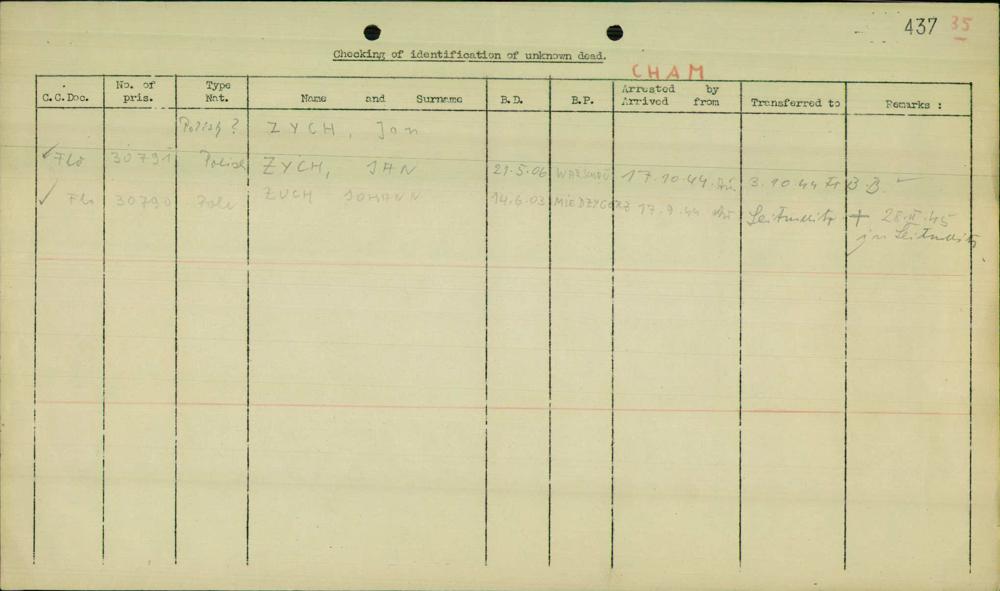 437 35
Checking of identification of unknown dead.
CHAM
C.C.Doc. No. of pris. Type Nat. Name and Surname B.D. B.P. Arrested by Arrived from Transferred to Remarks :
Polish? ZYCH, Jan
✓ Flo 30791 Polish ZYCH, JAN 21.5.06 WARSCHAU 17.10.44 Au 3.10.44 B.B. ✓
✓ Flo 30790 Pole ZUCH JOHANN 14.6.03 17.9.44 Au Leitmeritz + 28.II.45
in Leitmeritz